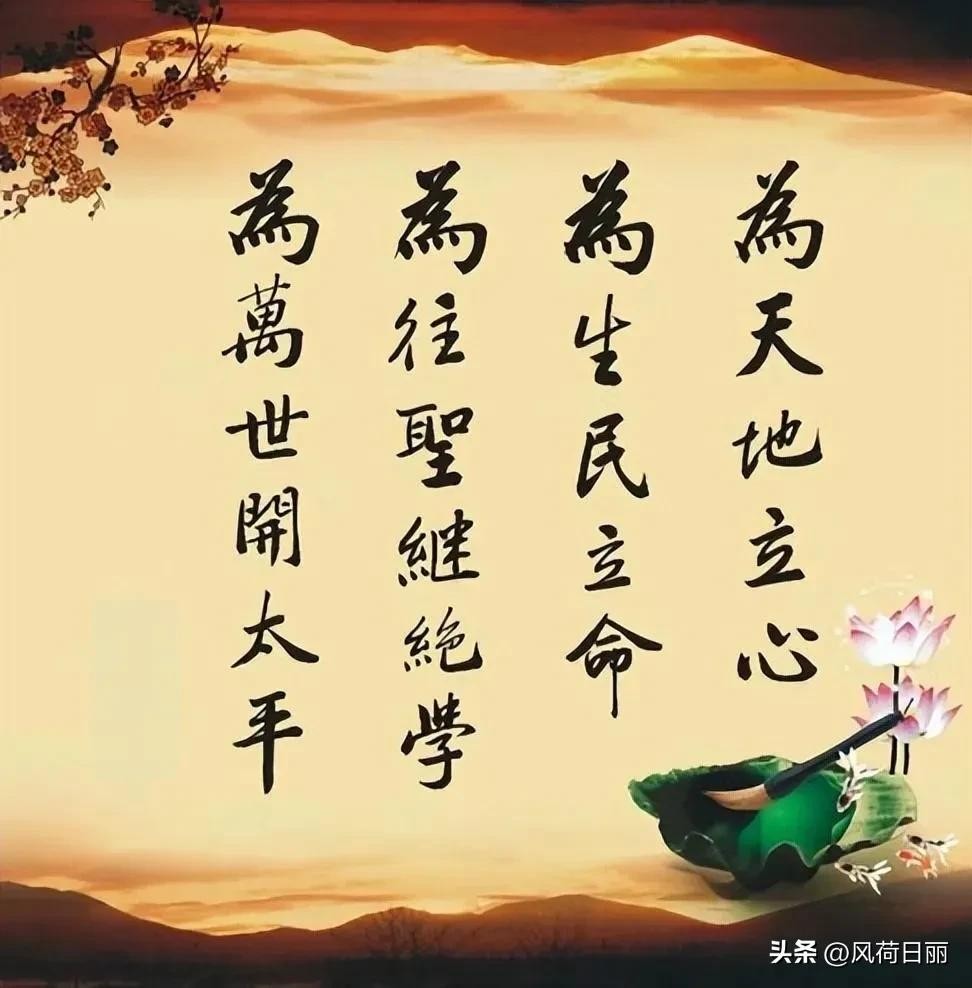 為天地立心
為生民立命
為往聖継絶學
為萬世開太平
头条 @风荷日丽